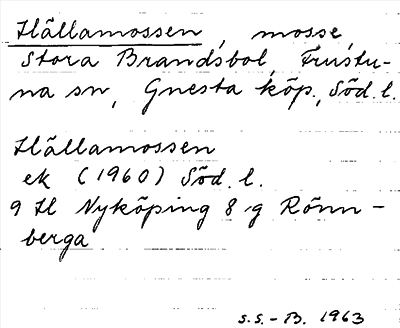 Hällamossen, mosse
Stora Brandsbol, Frustu-
na sn, Gnesta köp., Söd. l.
Hällamossen
ek (1960) Söd. l.
9 H Nyköping 8 g Rönn-
berga
S.S.-B. 1963